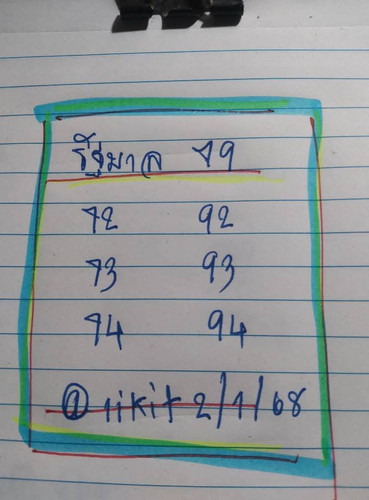 รัฐบาล 79
72 92
73 93
74 94
@ rikit 2/1/68